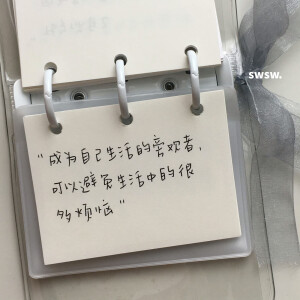 swsw.
"成为自己生活的旁观者,
可以避免生活中的很
多烦恼"